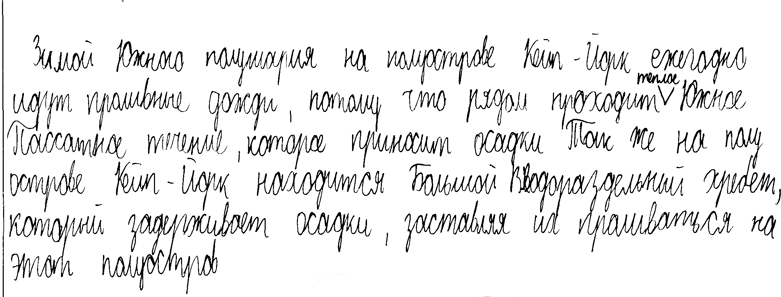 Зимой Южного полушария на полуострове Кейп-Йорк ежегодно
идут проливные дожди, потому что рядом проходит тёплое Южное
Пассатное течение, которое приносит осадки Так же на полу
острове Кейп-Йорк находится Большой Водораздельний хребет,
который задерживает осадки, заставляя их проливаться на
этот полуостров